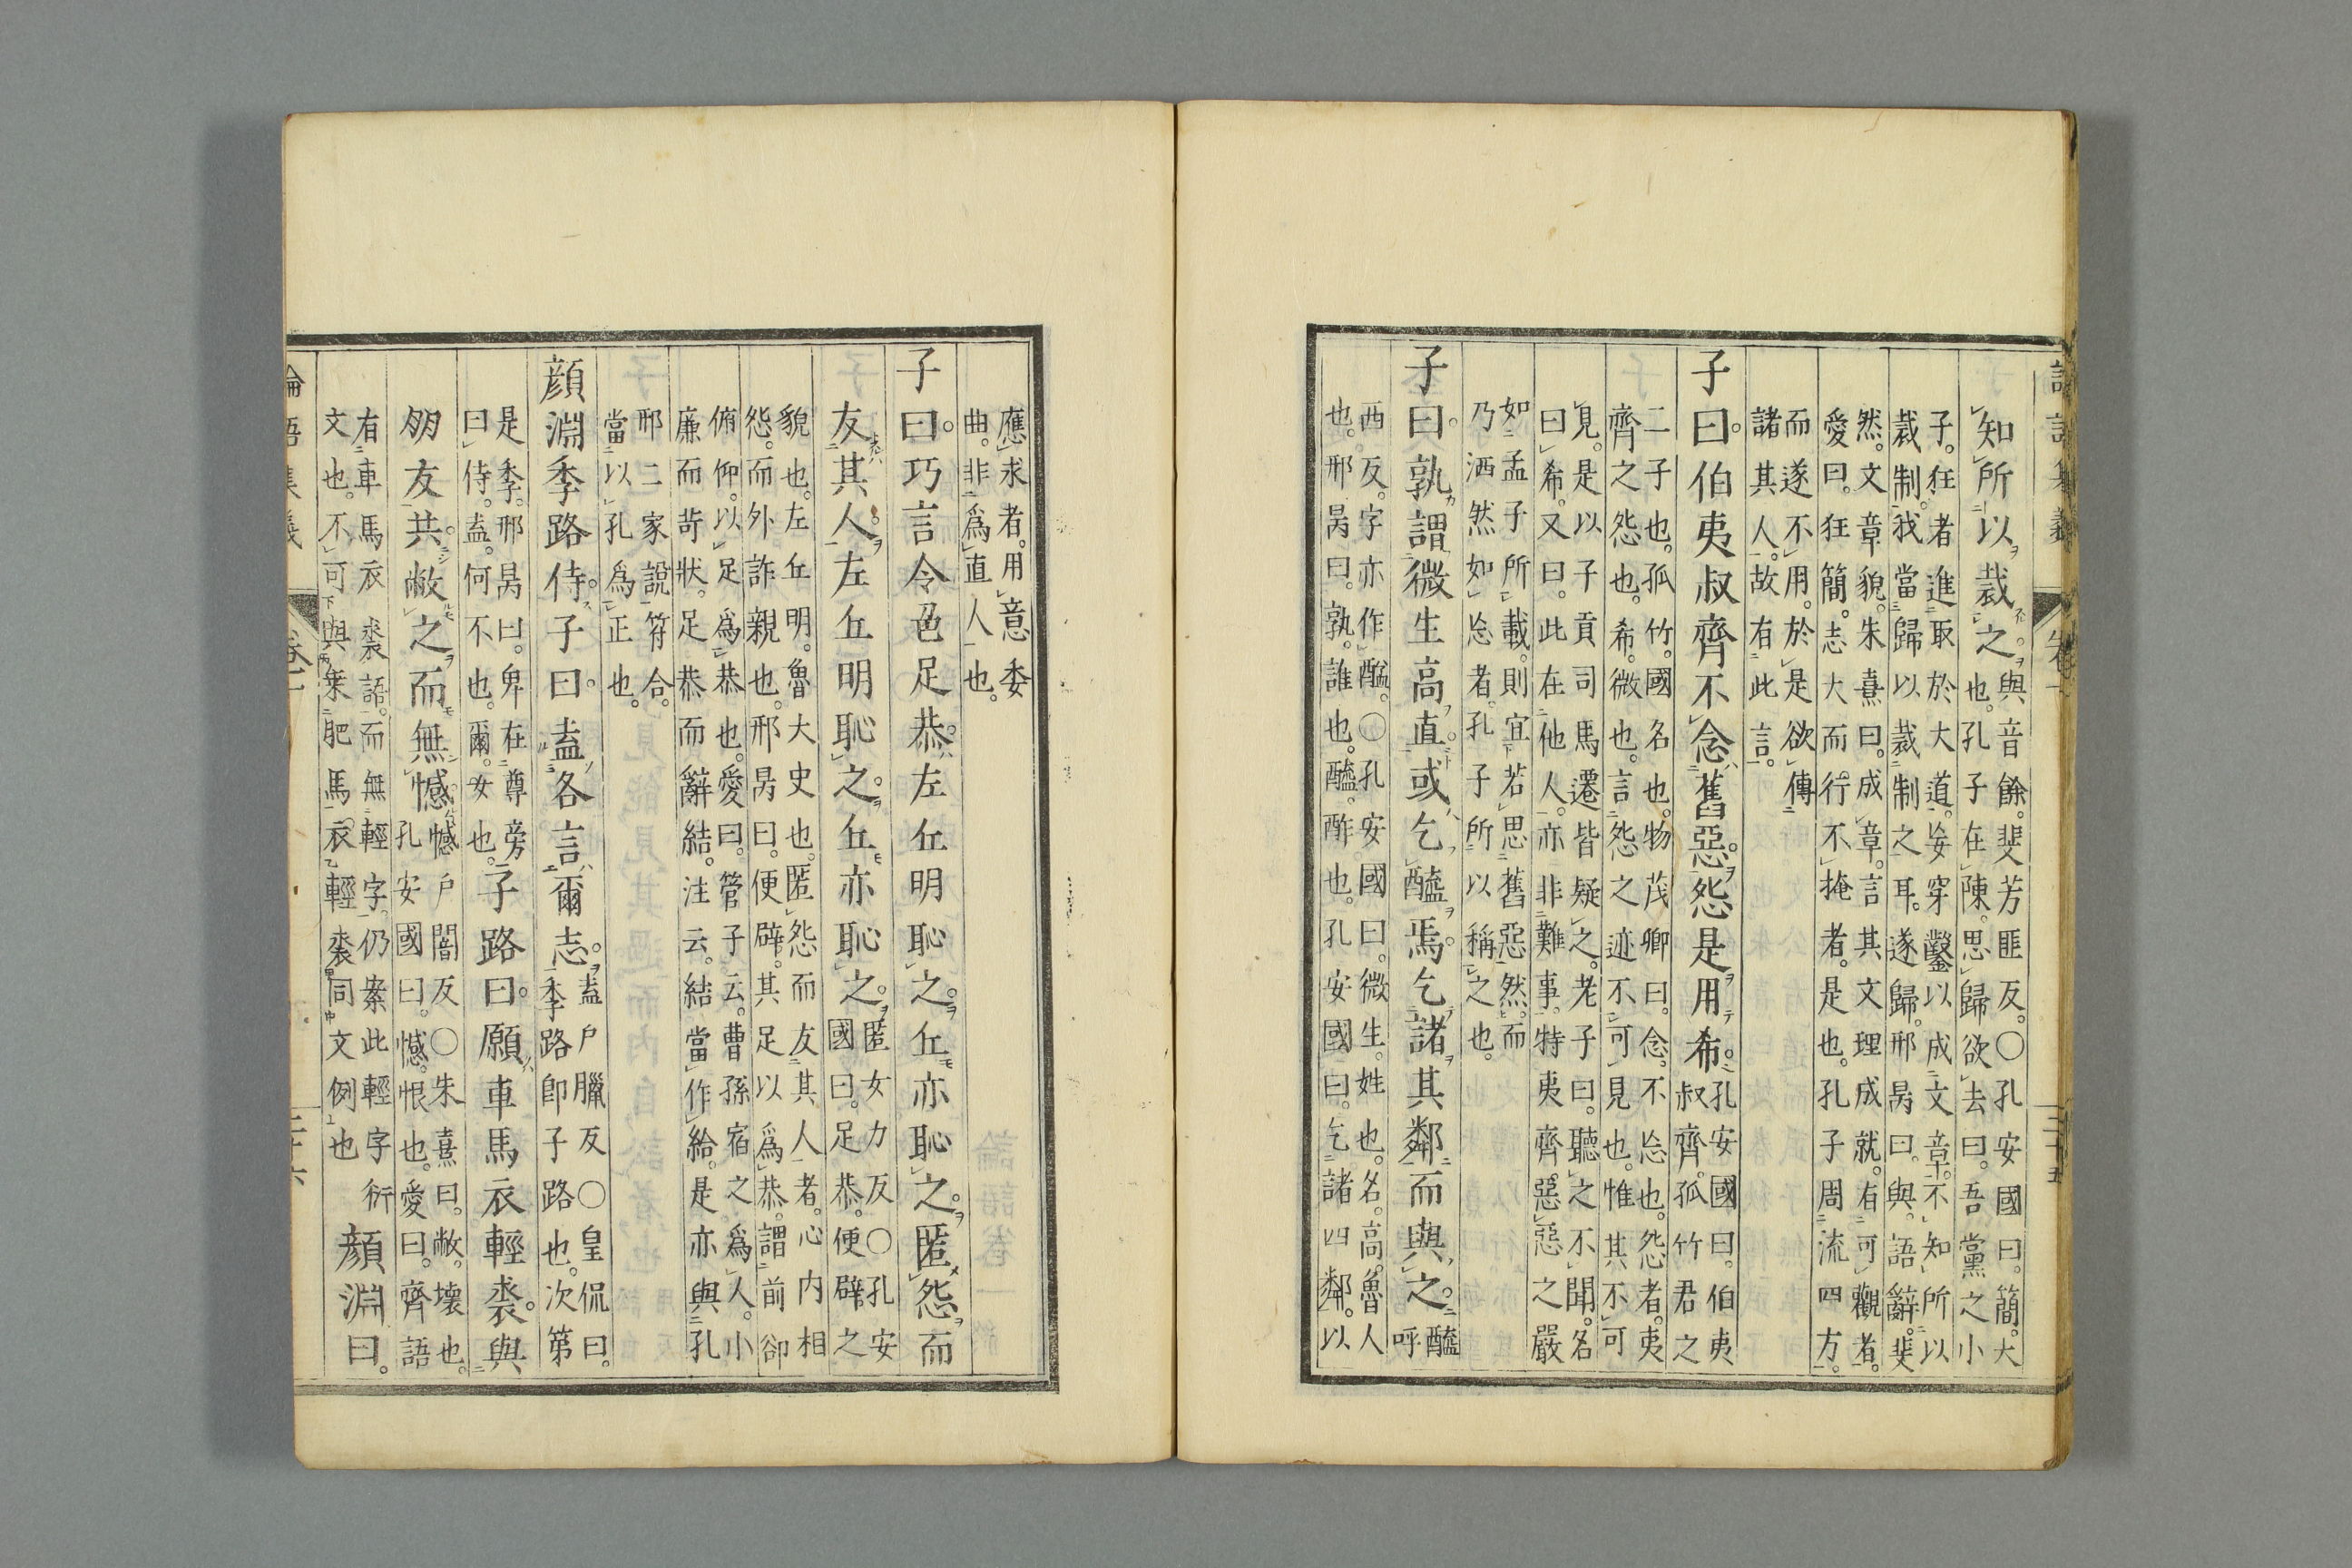 知所以裁之也
與音餘。斐芳匪反。○孔安國曰。簡。大
也。孔子在陳。思歸欲去曰。吾黨之小
子。狂者進取於大道。妄穿鑿以成文章。不知所以
裁制。我當歸以裁制之耳。遂歸。邢昺曰。與。語辭。斐
然。文章貌。朱熹曰。成章。言其文理成就。有可觀者。
愛曰。狂簡。志大而行不掩者。是也。孔子周流四方。
而遂不用。於是欲傳
諸其人。故有此言。
子曰。伯夷叔齊不念舊惡。怨是用希。
孔安國曰。伯夷
叔齊。孤竹君之
二子也。孤竹。國名也。物茂卿曰。念。不忘也。怨者。夷
齊之怨也。希。微也。言怨之迹不可見也。惟其不可
見。是以子貢司馬遷皆疑之。老子曰。聽之不聞。名
曰希。又曰。此在他人。亦非難事。特夷齊。惡惡之嚴
如孟子所載。則宜若思舊惡然。而
乃洒然如忘者。孔子所以稱之也。
子曰。孰謂微生高直。或乞醯焉。乞諸其鄰而與之。
醯
呼
西反。字亦作醯。○孔安國曰。微生。姓也。名。高。魯人
也。邢昺曰。孰。誰也。醯。酢也。孔安國曰。乞諸四鄰。以
三十五
應求者。用意委
曲。非爲直人也。
子曰。巧言令色足恭。左丘明恥之。丘亦恥之。匿怨而
友其人。左丘明恥之。丘亦恥之。
匿女力反○孔安
國曰。足恭。便辟之
貌也。左丘明。魯大史也。匿怨而友其人者。心内相
怨。而外詐親也。邢昺曰。便辟。其足以爲恭。謂前卻
俯仰。以足爲恭也。愛曰。管子云。曹孫宿之爲人。小
廉而苛狀。足恭而辭結。注云。結當作給。是亦與孔
邢二家說符合。
當以孔爲正也。
顔淵季路侍。子曰。盍各言爾志。
盍戶臘反○皇侃曰。
季路卽子路也。次第
是季。邢昺曰。卑在尊旁
曰侍。盍。何不也。爾。女也。
子路曰。願車馬衣輕裘。與
朋友共。敝之而無憾。
憾戶闇反○朱熹曰。敝。壞也。
孔安國曰。憾。恨也。愛曰。齊語
有車馬衣裘語。而無輕字。仍案此輕字衍
文也。不可與乗肥馬衣輕裘同文例也
顔淵曰。